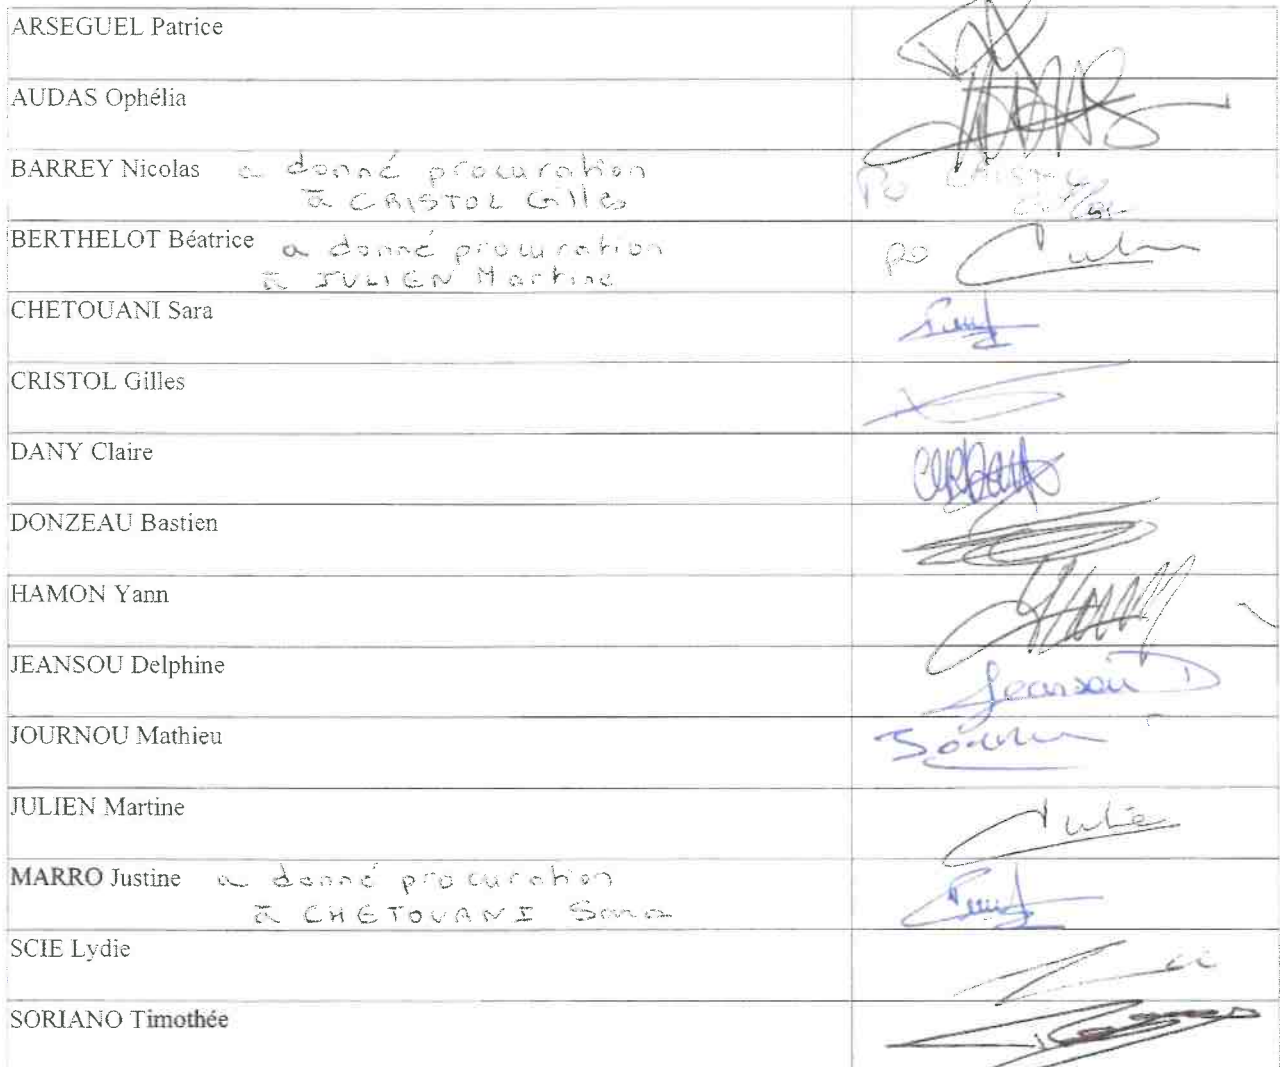 ARSEGUEL Patrice
AUDAS Ophélia
BARREY Nicolas a donné procuration
à CRISTOL Gilles
Po CRISTOL
BERTHELOT Béatrice a donné procuration
à JULIEN Martine
po
CHETOUANI Sara
CRISTOL Gilles
DANY Claire
DONZEAU Bastien
HAMON Yann
JEANSOU Delphine
Jeansou D
JOURNOU Mathieu
JULIEN Martine
MARRO Justine a donné procuration
à CHETOUANI Sara
SCIE Lydie
SORIANO Timothée